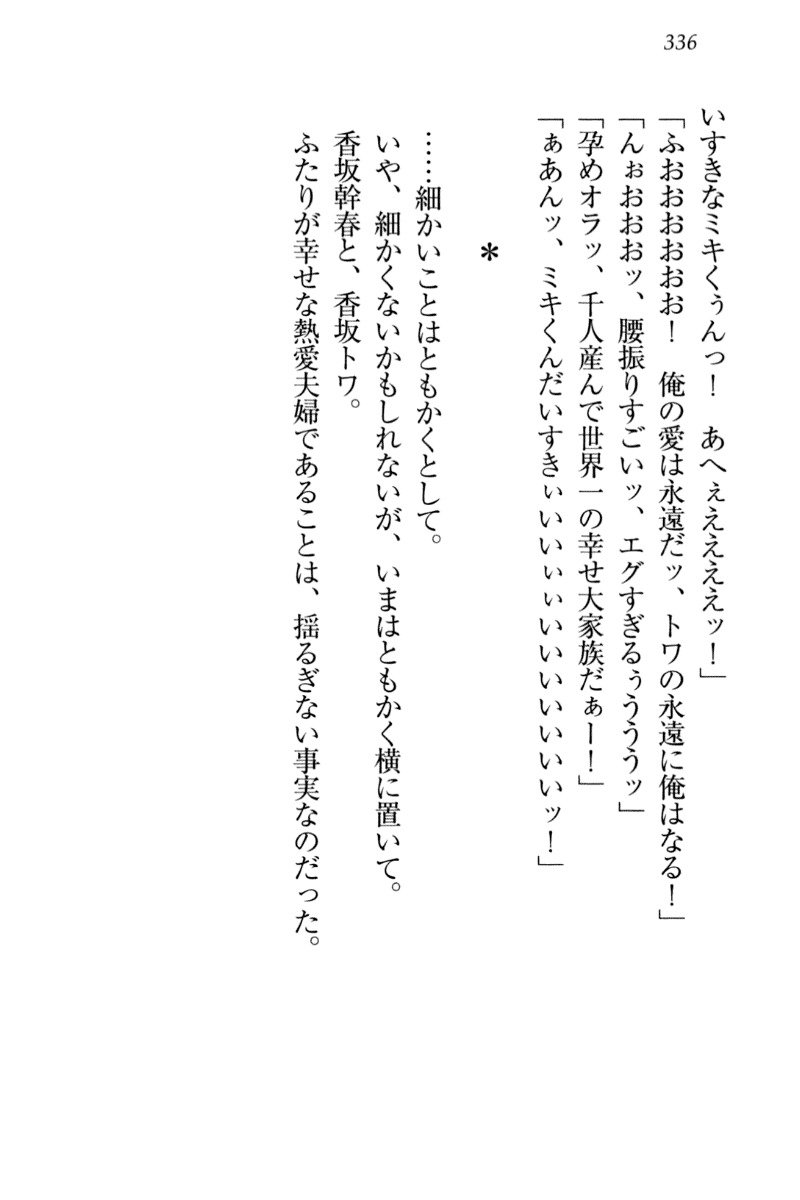 336
いすきなミキくぅんっ！　あへぇえええぇッ！」
「ふおおおおおお！　俺の愛は永遠だッ、トワの永遠に俺はなる！」
「んぉおおおッ、腰振りすごいッ、エグすぎるぅうううッ」
「孕めオラッ、千人産んで世界一の幸せ大家族だぁー！」
「ぁあんッ、ミキくんだいすきぃいいぃぃいいいいいいいッ！」
＊
……細かいことはともかくとして。
いや、細かくないかもしれないが、いまはともかく横に置いて。
香坂幹春と、香坂トワ。
ふたりが幸せな熱愛夫婦であることは、揺るぎない事実なのだった。